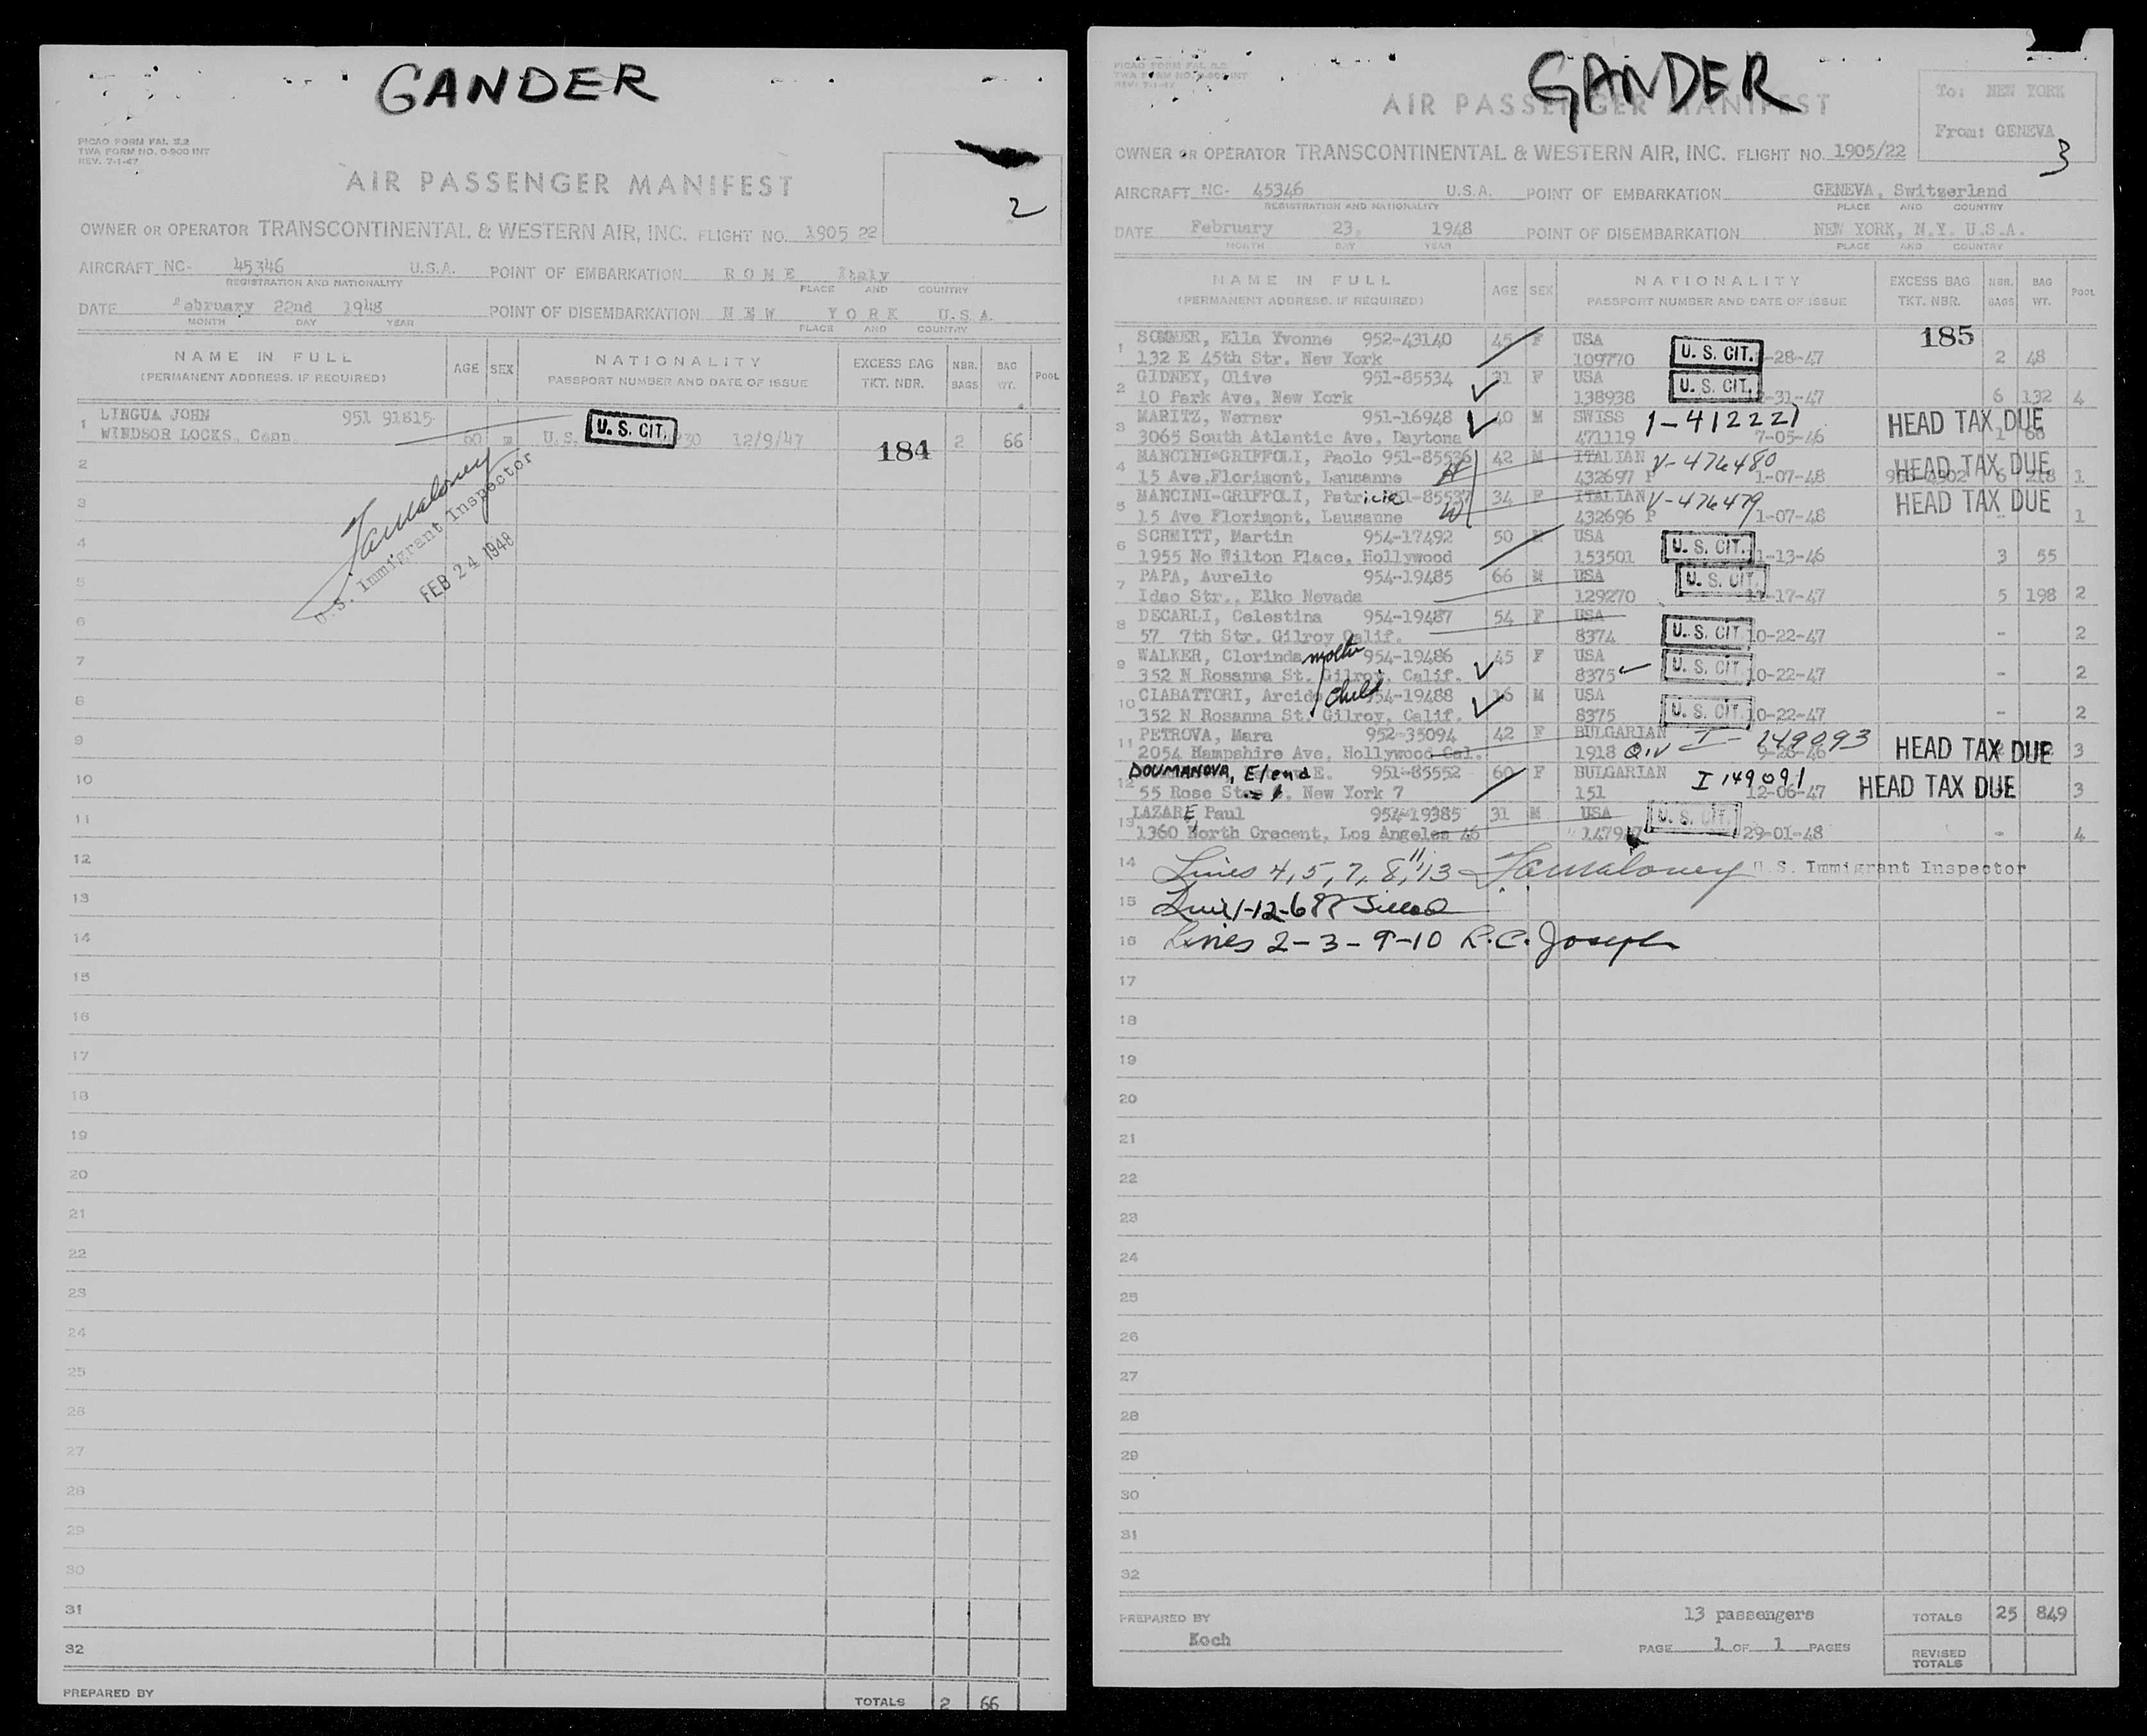 GANDER
PICAO FORM FAL S.2
TWA FORM NO. 0-900 INT
REV. 7-1-47
2
AIR PASSENGER MANIFEST
OWNER OR OPERATOR TRANSCONTINENTAL & WESTERN AIR, INC. FLIGHT NO. 1905 22
AIRCRAFT NC- 45346 U.S.A. POINT OF EMBARKATION ROME Italy
REGISTRATION AND NATIONALITY PLACE AND COUNTRY
DATE February 22nd 1948 POINT OF DISEMBARKATION NEW YORK U.S.A.
MONTH DAY YEAR PLACE AND COUNTRY
NAME IN FULL AGE SEX NATIONALITY EXCESS BAG NBR. BAG POOL
(PERMANENT ADDRESS, IF REQUIRED) PASSPORT NUMBER AND DATE OF ISSUE TKT. NBR. BAGS WT.
1 LINGUA JOHN 951 91815
WINDSOR LOCKS, Conn. 60 m U.S. U. S. CIT. 30 12/9/47 184 2 66
2
3
4
5
6
7
8
9
10
11
12
13
14
15
16
17
18
19
20
21
22
23
24
25
26
27
28
29
30
31
32
U.S. Immigrant Inspector
FEB 24 1948
PREPARED BY TOTALS 2 66
GANDER
PICAO FORM FAL S.2
TWA FORM NO. 0-900 INT
REV. 7-1-47
AIR PASSENGER MANIFEST
To: NEW YORK
From: GENEVA
3
OWNER OR OPERATOR TRANSCONTINENTAL & WESTERN AIR, INC. FLIGHT NO. 1905/22
AIRCRAFT NC- 45346 U.S.A. POINT OF EMBARKATION GENEVA, Switzerland
REGISTRATION AND NATIONALITY PLACE AND COUNTRY
DATE February 23, 1948 POINT OF DISEMBARKATION NEW YORK, N.Y. U.S.A.
MONTH DAY YEAR PLACE AND COUNTRY
NAME IN FULL AGE SEX NATIONALITY EXCESS BAG NBR. BAG POOL
(PERMANENT ADDRESS, IF REQUIRED) PASSPORT NUMBER AND DATE OF ISSUE TKT. NBR. BAGS WT.
1 SOMMER, Ella Yvonne 952-43140 45 F USA 185
132 E 45th Str. New York 109770 U. S. CIT. -28-47 2 48
2 GIDNEY, Olive 951-85534 31 F USA
10 Park Ave, New York 138938 U. S. CIT. -31-47 6 132 4
3 MARITZ, Werner 951-16948 40 M SWISS 1-412221 HEAD TAX DUE
3065 South Atlantic Ave, Daytona 471119 7-05-46 1 66
4 MANCINI-GRIFFOLI, Paolo 951-85536 H 42 M ITALIAN V-476480 HEAD TAX DUE
15 Ave, Florimont, Lausanne 432697 P 1-07-48 6 218 1
5 MANCINI-GRIFFOLI, Patricia 951-85537 W 34 F ITALIAN V-476479 HEAD TAX DUE
15 Ave Florimont, Lausanne 432696 P 1-07-48 - 1
6 SCHMITT, Martin 954-17492 50 M USA
1955 No Wilton Place, Hollywood 153501 U. S. CIT. 1-13-46 3 55
7 PAPA, Aurelio 954-19485 66 M USA
Idao Str., Elko Nevada 129270 U. S. CIT. 11-17-47 5 198 2
8 DECARLI, Celestina 954-19487 54 F USA
57 7th Str. Gilroy Calif. 8374 U. S. CIT 10-22-47 - 2
9 WALKER, Clorinda mother 954-19486 45 F USA
352 N Rosanna St. Gilroy, Calif. 8375 U. S. CIT. 10-22-47 - 2
10 CIABATTORI, Arcido child 954-19488 16 M USA
352 N Rosanna St. Gilroy, Calif. 8375 U. S. CIT. 10-22-47 - 2
11 PETROVA, Mara 952-35094 42 F BULGARIAN I-149093 HEAD TAX DUE
2054 Hampshire Ave, Hollywood Cal. 1918 QIV 9-28-46 3
12 DOUMANOVA, Elena E. 951-85552 60 F BULGARIAN I 149091 HEAD TAX DUE
55 Rose New York 7 151 12-06-47 3
13 LAZARE, Paul 954-19385 31 M USA
1360 North Crecent, Los Angeles 46 U. S. CIT. 29-01-48 - 4
14 Lines 4, 5, 7, 8, 11, 13 U.S. Immigrant Inspector
15
16 Lines 2-3-9-10 R.C. Joseph
17
18
19
20
21
22
23
24
25
26
27
28
29
30
31
32
PREPARED BY 13 passengers TOTALS 25 849
Koch PAGE 1 OF 1 PAGES REVISED TOTALS